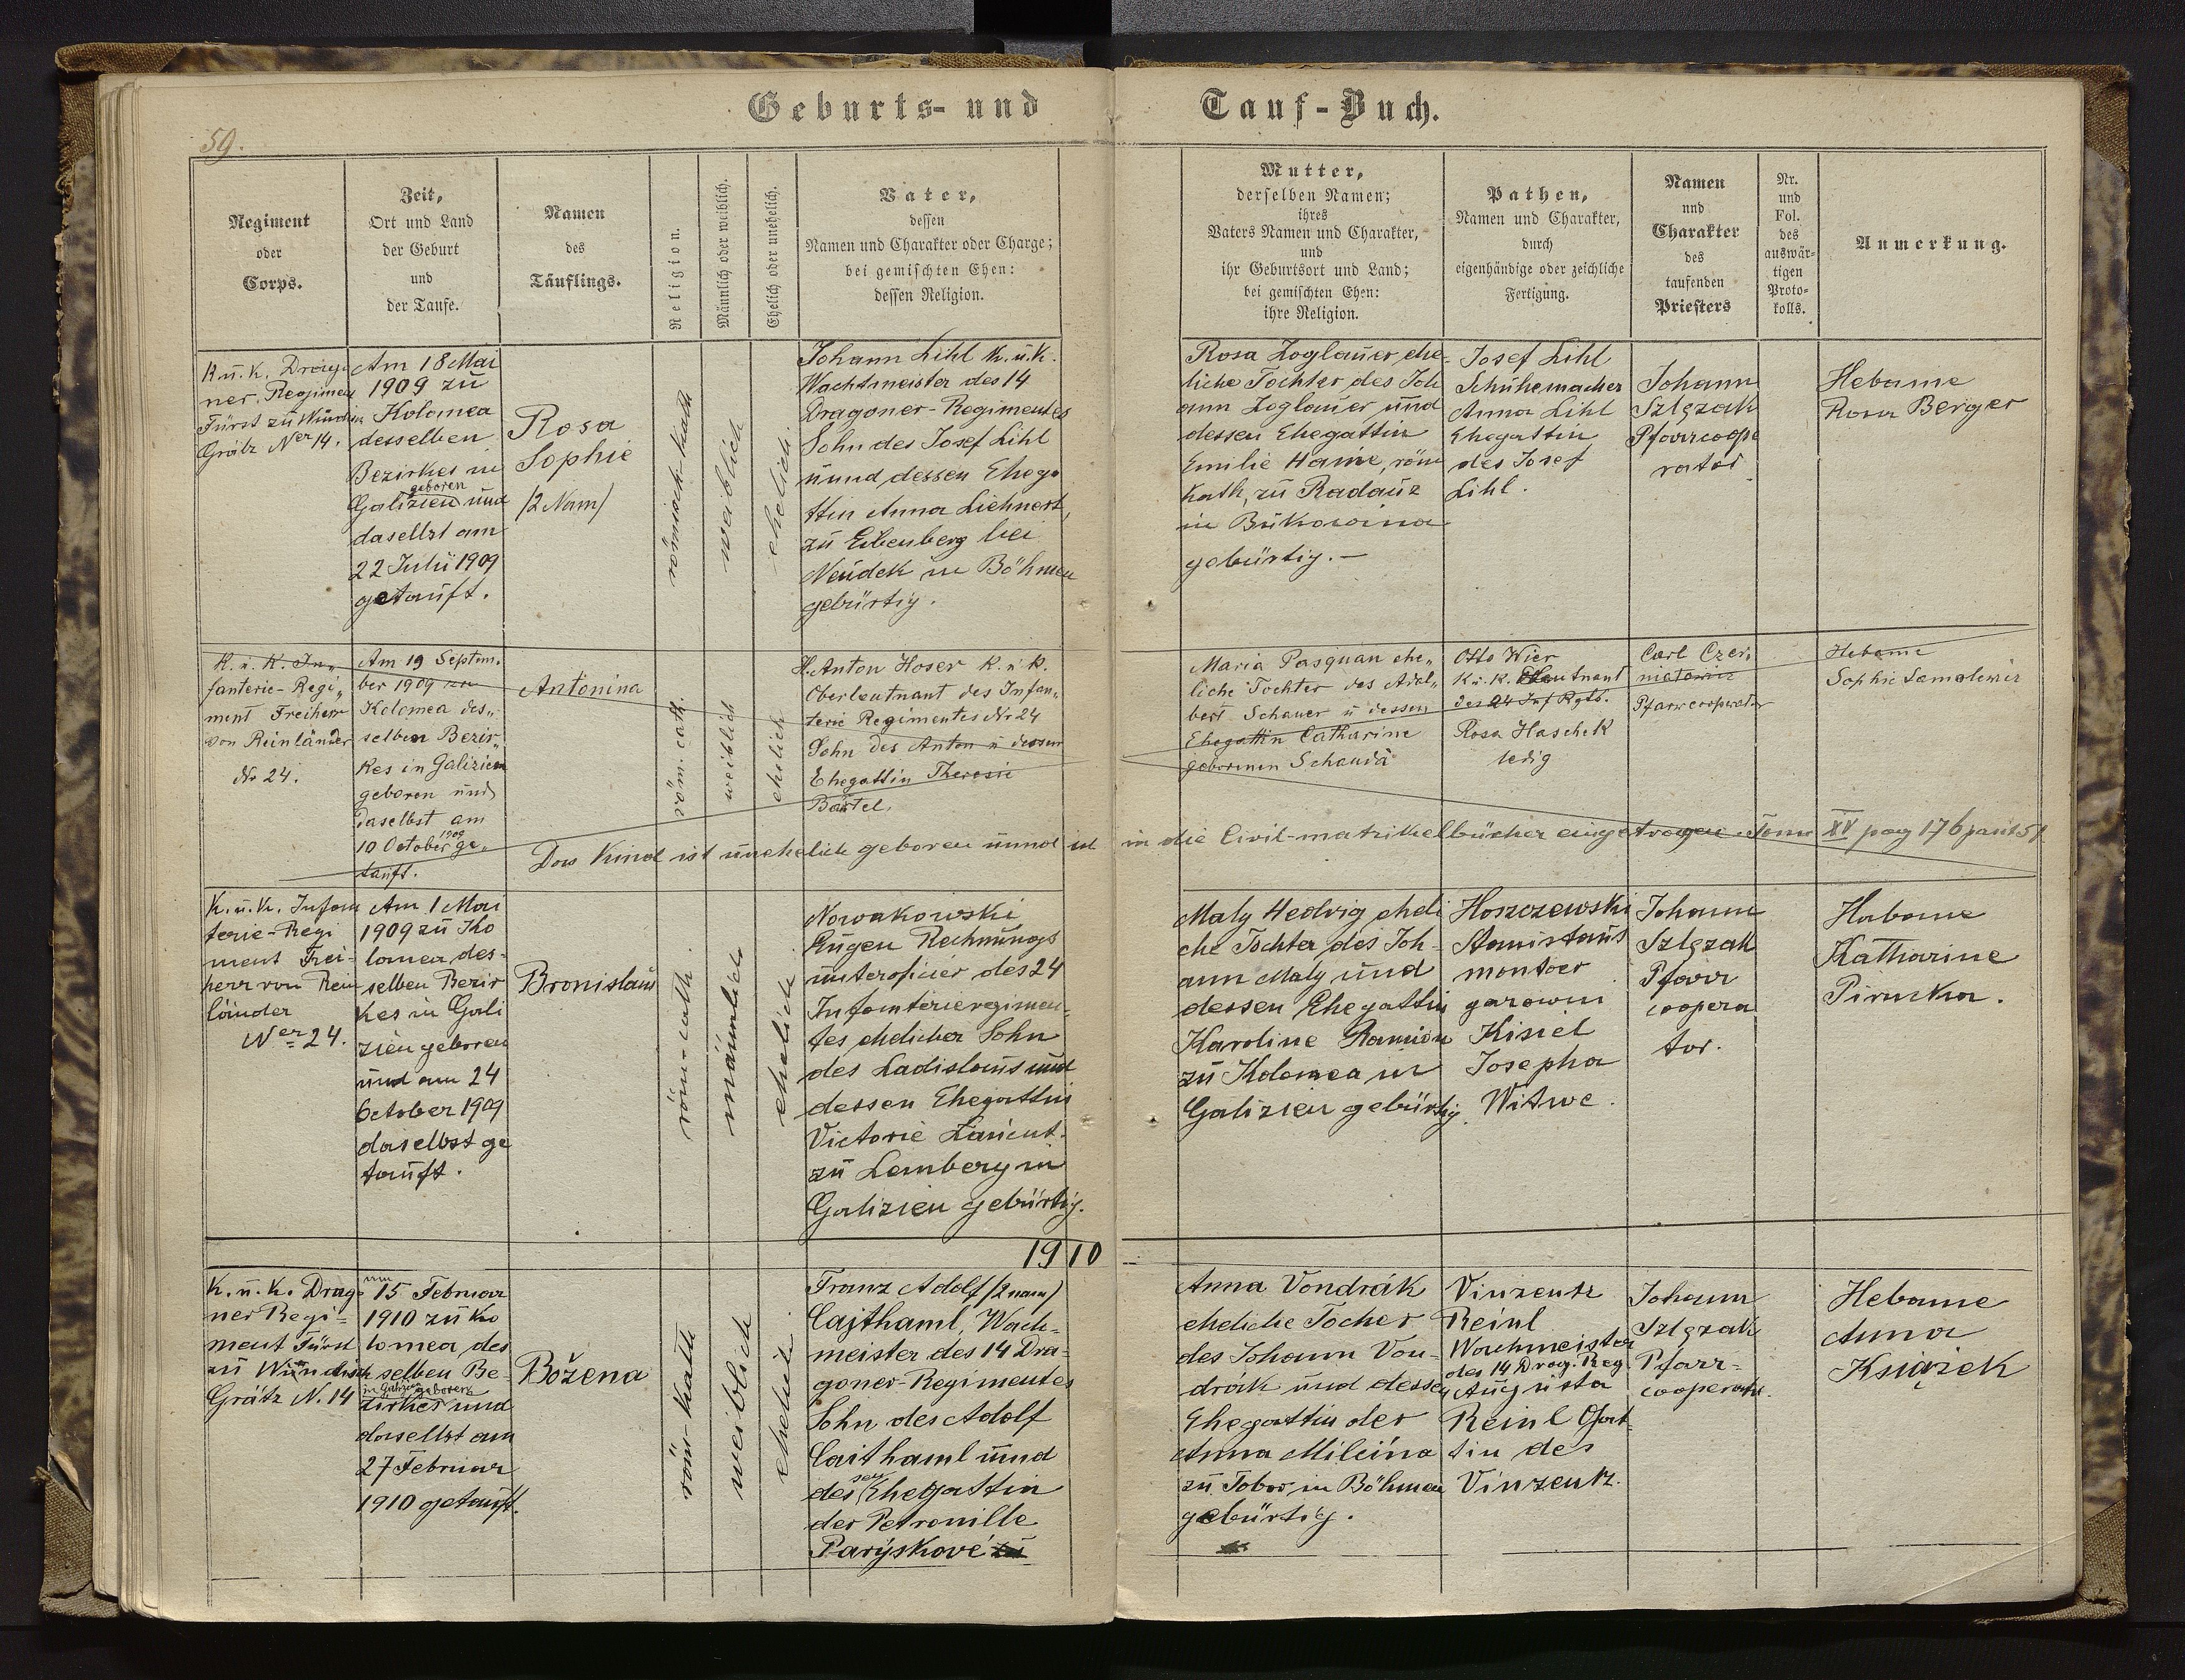 59.
Geburts- und Tauf-Buch.
Regiment
oder
Corps.
Zeit,
Ort und Land
der Geburt
und
der Taufe.
Namen
des
Täuflings.
Religion.
Männlich oder weiblich.
Ehelich oder unehelich.
Vater,
dessen
Namen und Charakter oder Charge;
bei gemischten Ehen:
dessen Religion.
Mutter,
derselben Namen;
ihres
Vaters Namen und Charakter,
und
ihr Geburtsort und Land;
bei gemischten Ehen:
ihre Religion.
Pathen,
Namen und Charakter,
durch
eigenhändige oder zeichliche
Fertigung.
Namen
und
Charakter
des
taufenden
Priesters
Nr.
und
Fol.
des
auswär-
tigen
Proto-
kolls.
Anmerkung.
K. ü. K. Drago
ner. Regimen
Fürst zü Windisch
Grätz Ner 14.
Am 18 Mai
1909 zü
Kolomea
desselben
Bezirkes in
geboren
Galizien und
daselbst am
22 Julii 1909
getauft.
Rosa
Sophie
/2 Nam/
römisch-kath
weiblich
ehelich.
Johann Lihl K. ü. K.
Wachtmeister des 14
Dragoner-Regimentes
Sohn des Josef Lihl
ünnd dessen Ehega
ttin Anna Liehnert,
zü Eibenberg bei
Neüdek in Böhmen
gebürtig.
Rosa Zoglaüer ehe-
liche Tochter des Joh
ann Zoglaüer ünd
dessen Ehegattin
Emilie Haine, röm
kath, zü Radaüz
in Bükowina
gebürtig.—
Josef Lihl
Schühemacher
Anna Lihl
Ehegattin
des Josef
Lihl.
Johann
Szlęzak
Pfarrcoope
rator
Hebame
Rosa Berger
K. u. K. In„
fanterie-Regi„
ment Freiherr
von Reinländer
Nr 24.
Am 19 Septem.
ber 1909 zu
Kolomea des„
selben Bezir„
kes in Galizien
geboren und
daselbst am
1909
10 October ge„
tauft.
Antonina
röm. cath.
weiblich
ehelich
H. Anton Hoser K. u. K.
Oberleutnant des Infan„
terie Regimentes Nr 24
Sohn des Anton u dessen
Ehegattin Theresie
Bartel.
Maria Pasquan ehe„
liche Tochter des Adal„
bert Schauer u dessen
Ehegattin Catharine
geborenen Schauda
Otto Wier
K. u. K. Leutnant
des 24 Inf Rgts.
Rosa Haschek
ledig
Carl Czer„
matowicz
Pfarrcooperator
Hebame
Sophie Samolewicz
Das Kind ist ünehelich geboren ünnd ist in die Civil-matrikelbücher eingetragen Tom XV pag 176
K. ü. K. Infan
terie-Regi
ment Frei-
herr von Rein
länder
Ner 24.
Am 1 Mai
1909 zü Ko
lomea des-
selben Bezir
kes in Gali
zien geboren
ünd am 24
October 1909
daselbst ge
tauft.
Bronislaüs
röm-cath.
männlich
ehelich
Nowakowski
Eügen Rechnüngs
ünteroficier des 24
Infanterieregimen-
tes ehelicher Sohn
des Ladislaüs ünd
dessen Ehegattin
Victorie
zü Lemberg in
Galizien gebürtig.
Maly Hedvig eheli
che Tochter des Joh-
ann Maly ünd
dessen Ehegattin
Karoline
zü Kolomea in
Galizien gebürtig.
Hoszozewski
Stanislaüs
montoer
garowni
Kisiel
Josepha
Witwe.
Johann
Szlęzak
Pfarr
coopera
tor.
Habame
Katharine
Pirucka.
1910
K. ü. K. Drago
ner Regi=
ment Fürst
zü Windisch
Grätz N. 14
am
15 Februar
1910 zü Ko
lomea des
selben Be-
in Galizien geboren
zirkes und
daselbst am
27 Februar
1910 getauft.
Božena
röm-kath
weiblich
ehelich.
Franz Adolf /2 nam/
Cajthaml, Wach-
meister des 14 Dra-
goner-Regimentes
Sohn des Adolf
Caithaml ünd
sen
des Ehegattin
der Petronille
Parýskové
Anna Vondrák
eheliche Tocher
des Johann Von-
drák ünd dessen
Ehegattin der
Anna Mileina
zü Tobor in Böhmen
gebürtig.
Vinzentz
Reinl
Wachmeister
des 14 Drag. Reg
Aügüsta
Reinl Gat
tin des
Vinzentz.
Johann
Szlęzak
Pfarr-
cooperator.
Hebame
Anna
Książek